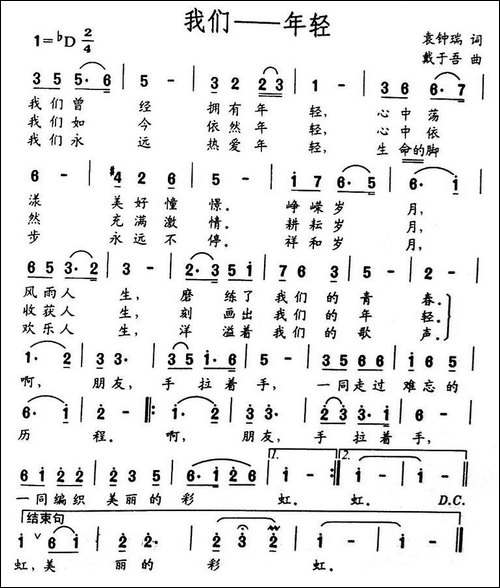 我们——年轻
1=♭D 2/4
袁钟瑞 词
戴于吾 曲
3 5 5· 6 | 5 - | 3 2 2 3 | 1 - | 3 6 6· 7 |
我们曾 经 拥有年 轻, 心中荡
我们如 今 依然年 轻, 心中依
我们永 远 热爱年 轻, 生命的脚
6 - | #4 2 6 | 5 - | 1 7 6· 5 | 6· i |
漾 美好憧 憬。 峥嵘岁 月,
然 充满激 情。 耕耘岁 月,
步 永远不 停。 祥和岁 月,
6 5 3· 2 | 3 - | 2· 3 5 i | 7 6 3 | 5 - | 2 - |
风雨人 生, 磨 练了 我们 的 青 春。
收获人 生, 刻 画出 我们 的 年 轻。
欢乐人 生, 洋 溢着 我们 的 歌 声。
1· 2 | 3 3· | 3 5 i· 6 | 5 - | 3 5 6 6 | 5 6 3 |
啊, 朋友, 手 拉着 手, 一同走过 难忘的
6· i | 2 - :‖: i· 2 | 3 3· | 2 2 3· i | 6 - |
历 程。 啊, 朋友, 手 拉着 手,
6 i 2 2 | 2 3 5 | 6 i 2 6 | i - | i - :‖ i - | i - ‖
一同编织 美丽的 彩 虹。 虹。 D.C.
1. 2.
结束句
i ∨ 6 i | 2 2· | 2 3 2 | i - | i - ‖
虹,美 丽的 彩 虹。